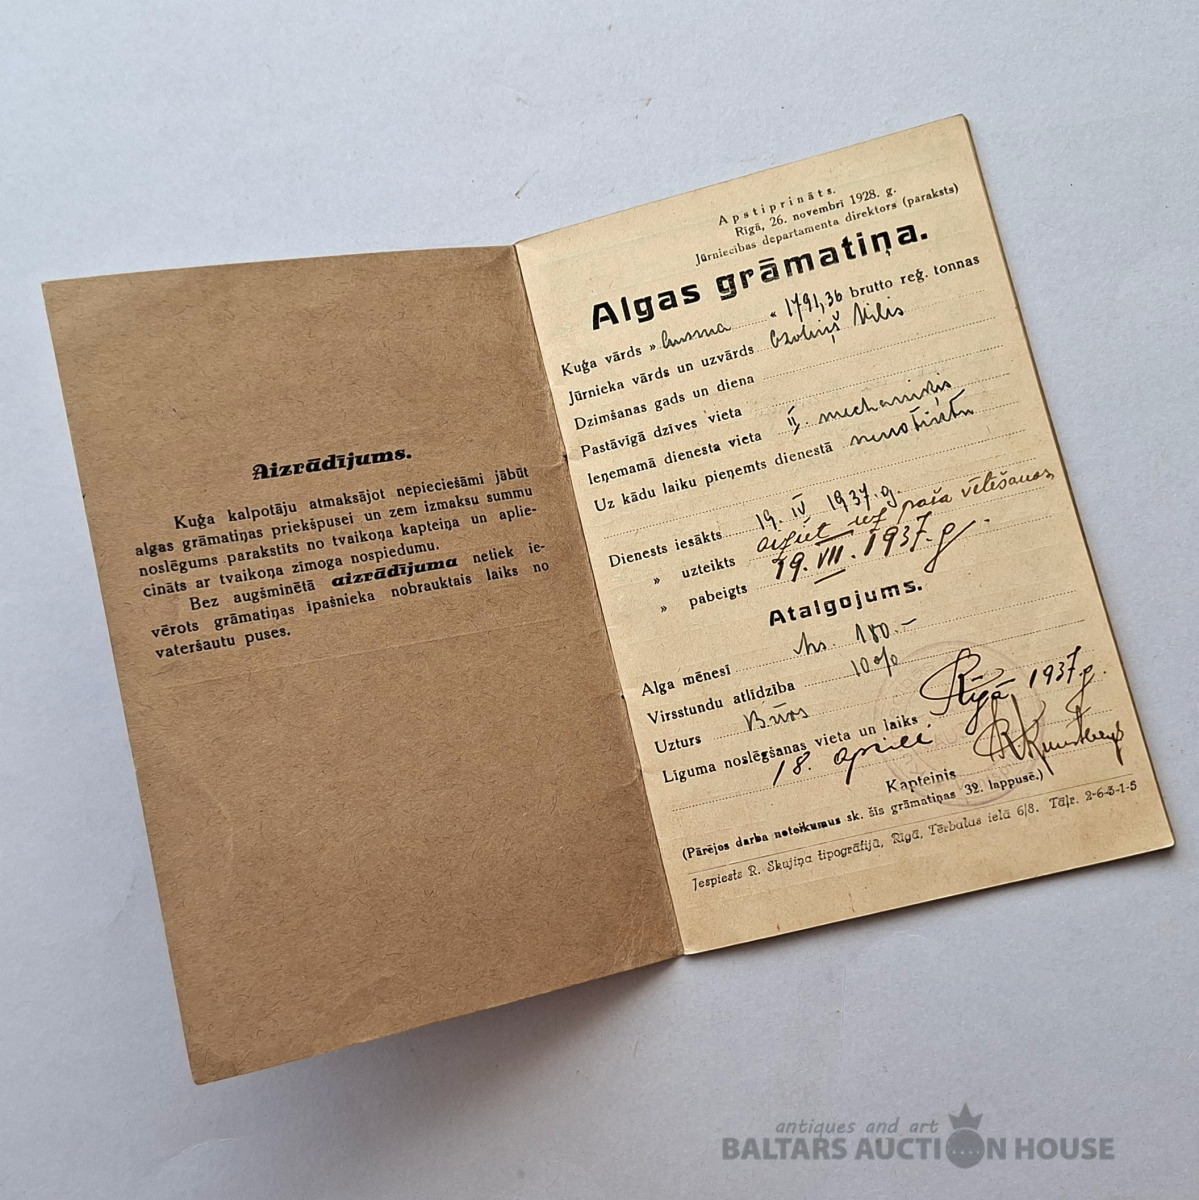 Aizrādījums.
Kuģa kalpotāju atmaksājot nepieciešāmi jābūt
algas grāmatiņas priekšpusei un zem izmaksu summu
noslēgums parakstīts no tvaikoņa kapteiņa un aplie-
cināts ar tvaikoņa zīmoga nospiedumu.
Bez augšminētā aizrādījuma netiek ie-
vērots grāmatiņas īpašnieka nobrauktais laiks no
vateršautu puses.
Apstiprināts.
Rīgā, 26. novembrī 1928. g.
Jūrniecības departamenta direktors (paraksts)
Algas grāmatiņa.
Kuģa vārds » Ausma « 1791,36 brutto reģ. tonnas
Jūrnieka vārds un uzvārds Ozoliņš Vilis
Dzimšanas gads un diena
Pastāvīgā dzīves vieta
Ieņemamā dienesta vieta II. mechaniķis
Uz kādu laiku pieņemts dienestā nenoteiktu
Dienests iesākts 19. IV 1937. g.
» uzteikts aizgāt uz paša vēlēšanos
» pabeigts 19. VII. 1937. g.
Atalgojums.
Alga mēnesī Ls. 180.–
Virsstundu atlīdzība 10%
Uzturs Brīvs
Līguma noslēgšanas vieta un laiks Rīgā, 1937 g.
18. aprīlī
Kapteinis
(Pārējos darba noteikumus sk. šīs grāmatiņas 32. lappusē.)
Iespiests R. Skujiņa tipogrāfijā, Rīgā, Tērbatas ielā 6/8. Tāļr. 2-6-3-1-5
antiques and art
BALTARS AUCTION HOUSE